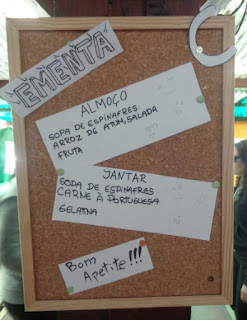 EMENTA
ALMOÇO
SOPA DE ESPINAFRES
ARROZ DE ATUM, SALADA
FRUTA
JANTAR
SOPA DE ESPINAFRES
CARNE À PORTUGUESA
GELATINA
Bom
Apetite!!!